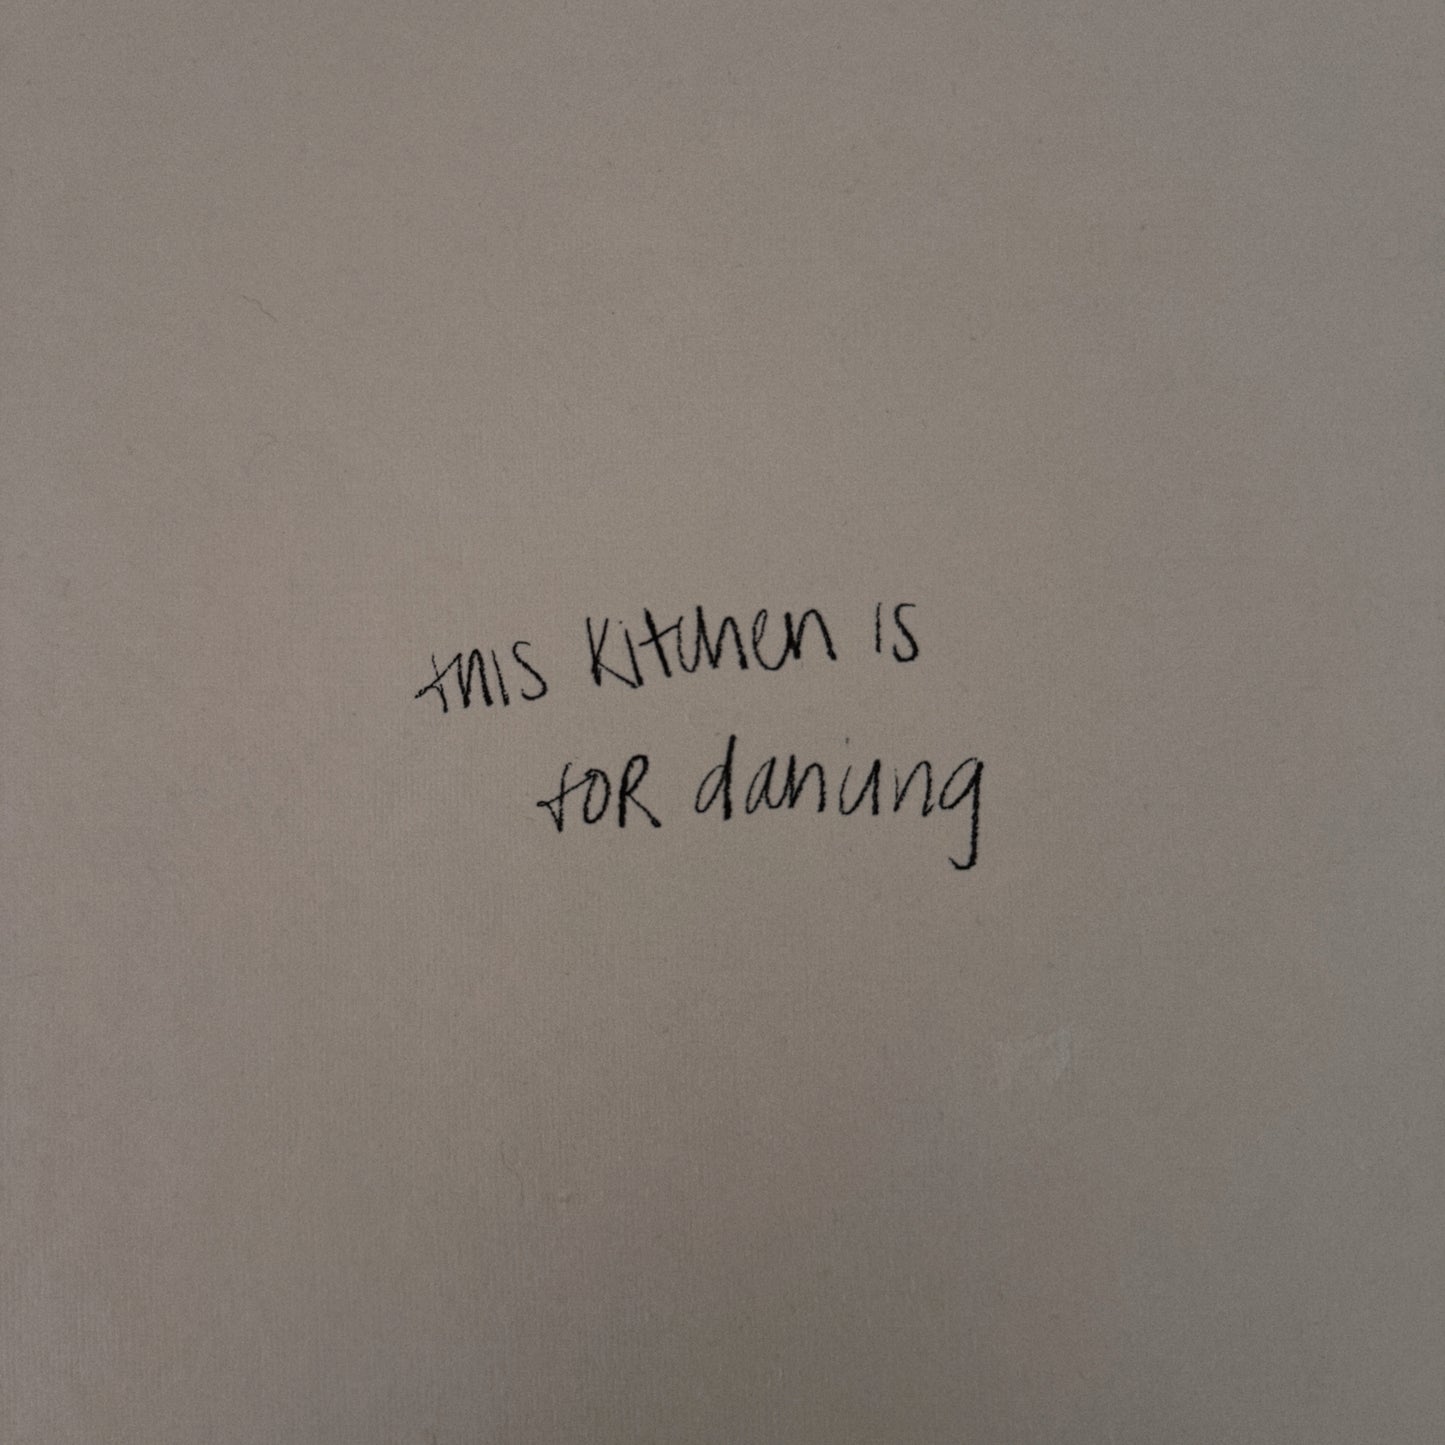 this kitchen is
for dancing